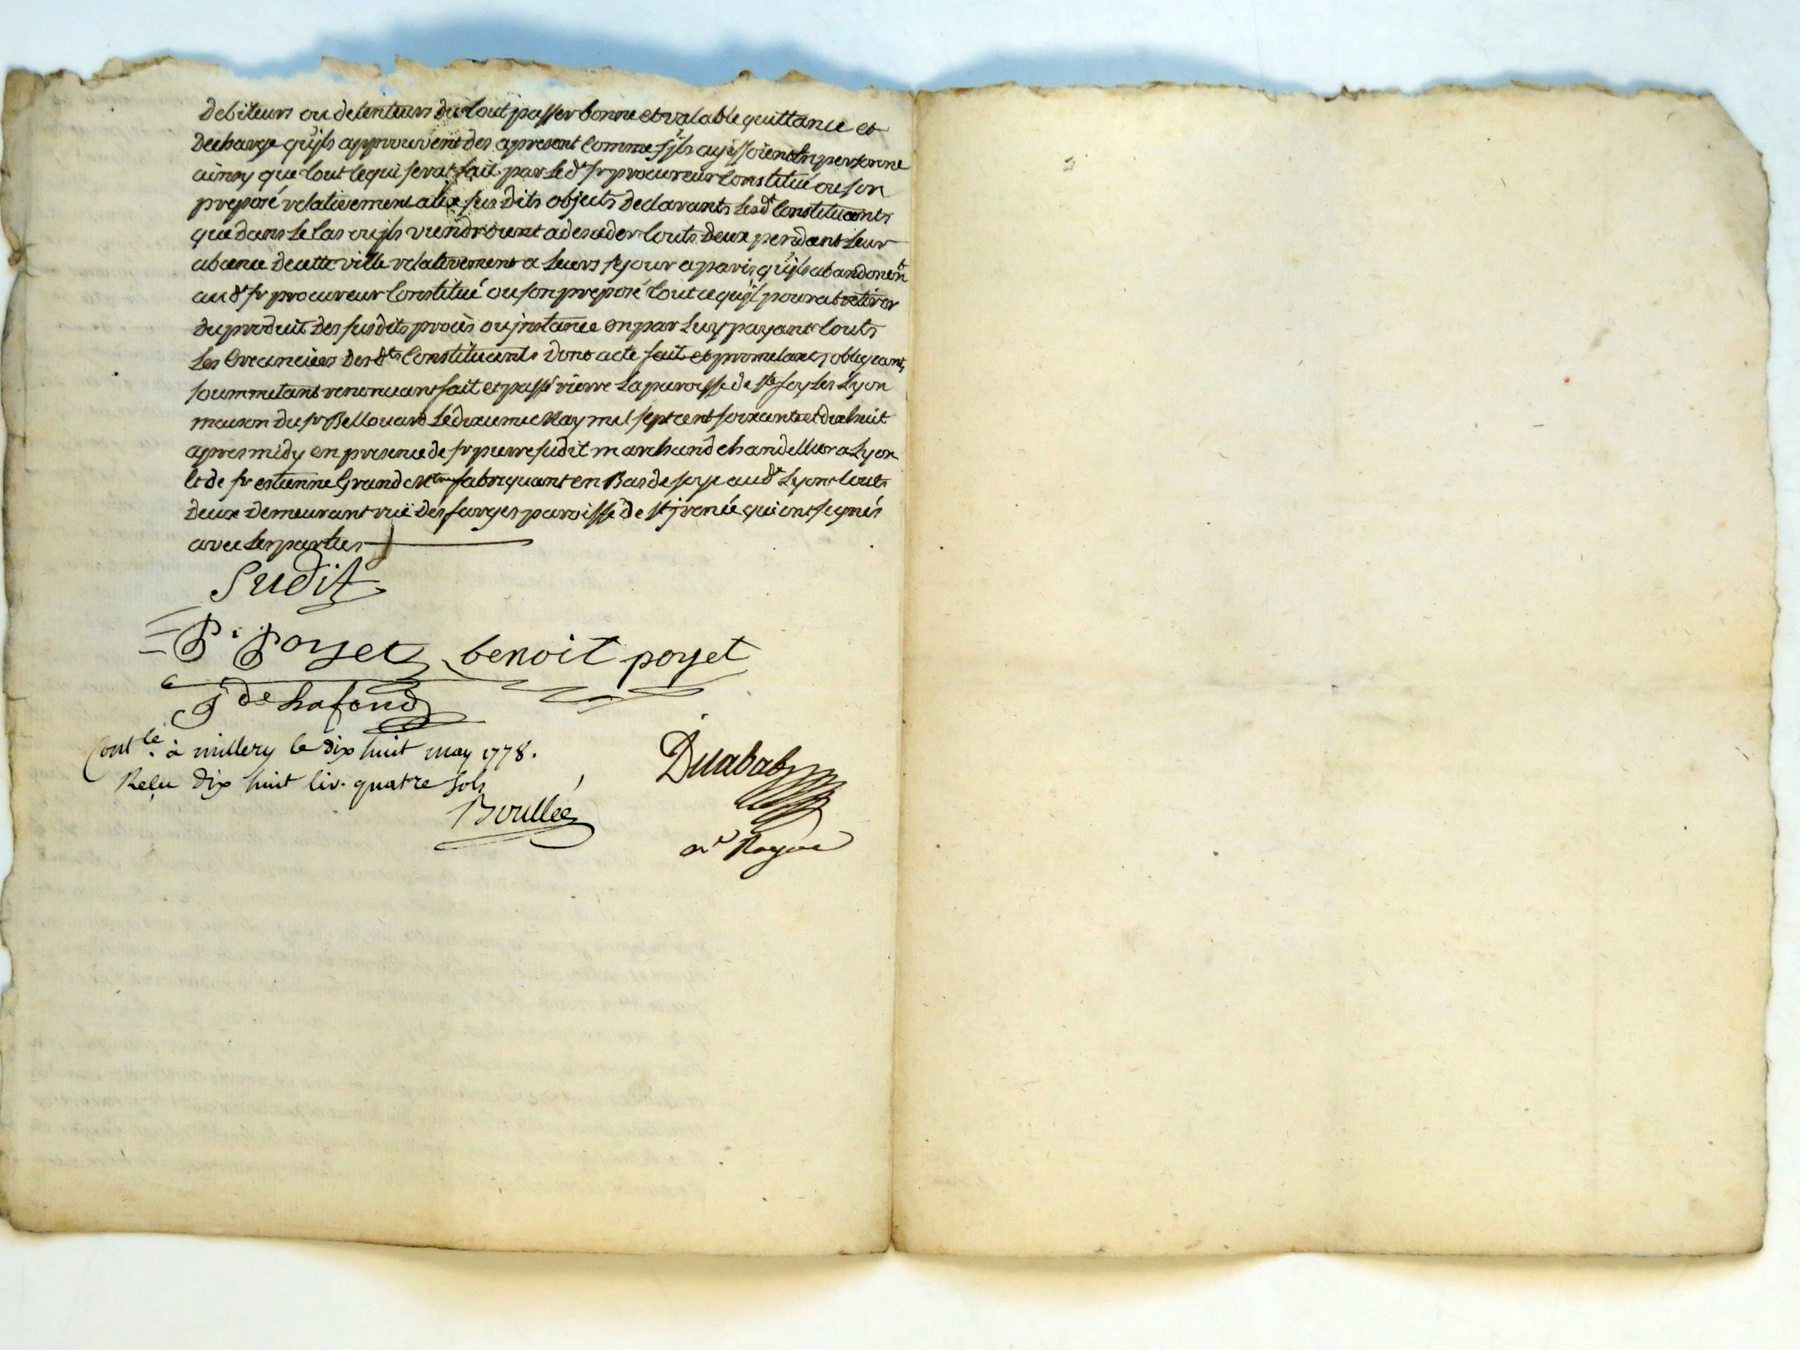 debiteurs ou detenteurs du tout passer bonne et valable quittance et
decharge qu'jls approuvent des apresent comme sjls agissoient en personne
ainsy que tout ce qui serat fait par le dt sr procureur Constitué ou son
preposé relativement aux sus dits objects declarants les dt Constituants
que dans le cas ou jls viendroient a deceder touts deux pendant leur
absence de cette ville relativement a leurs sejour a paris qu'jls abandonent
au dt sr procureur Constitué ou son preposé tout ce qu'jl pourat retirer
du produit des susdits procès ou jnstance en par luy payant touts
les Creanciers des dts Constituants dont acte fait et promettant obligeant
soummettant renonceant fait et passé rierre la paroisse de ste foy Les Lyon
maison du sr Bellouard le dixieme May mil sept cent soixante et dixhuit
apres midy en presence de sr pierre sudit marchand chandellier a Lyon
et de sr estienne Grand fabriquant en Bas de soye au dt Lyon touts
deux demeurant ruë des farges paroisse de st jrenée qui ont signés
avec les parties
Sudit
Pi Poyet benoit poyet
G de Lafond
Contlé à millery le dix huit may 1778.
Reçu dix huit liv. quatre sols
Boullée
nre Royal